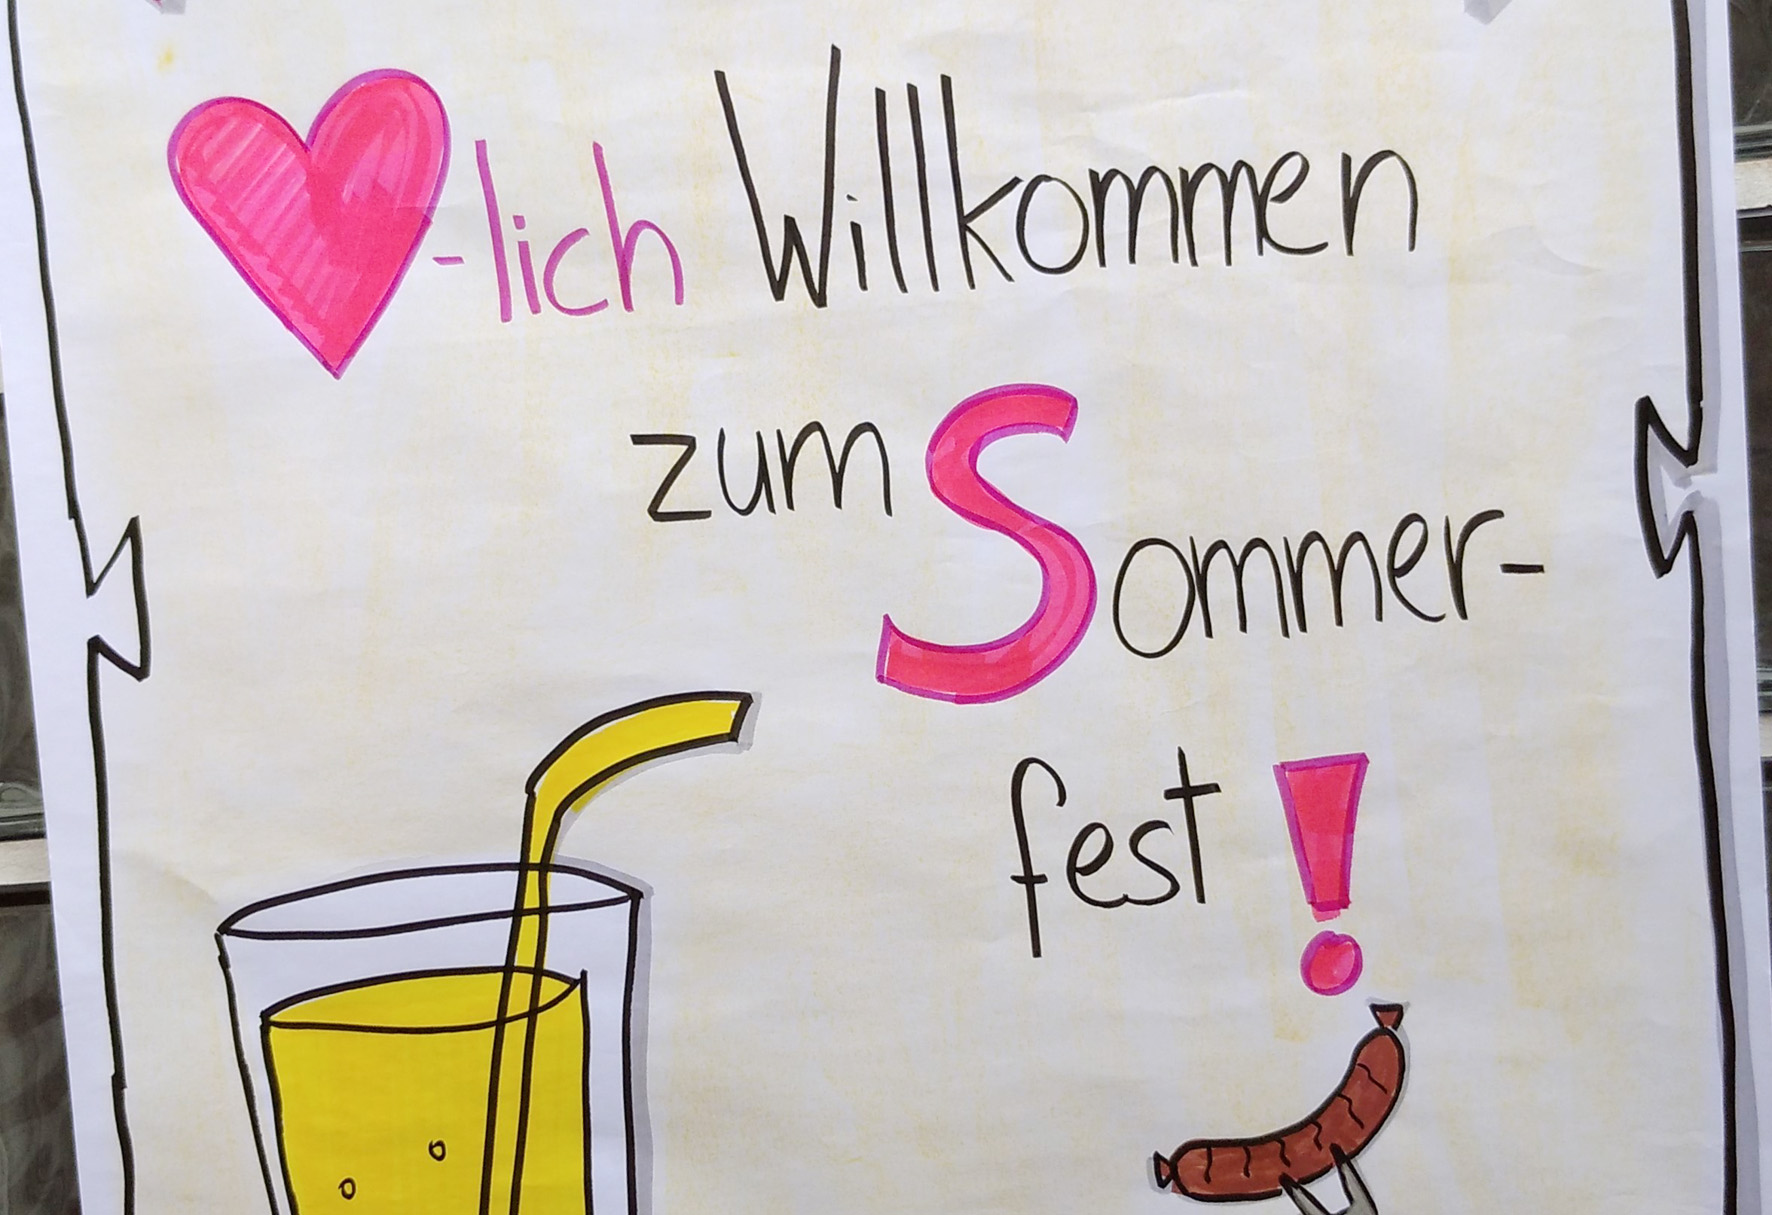 ❤-lich Willkommen
zum Sommer-
fest!